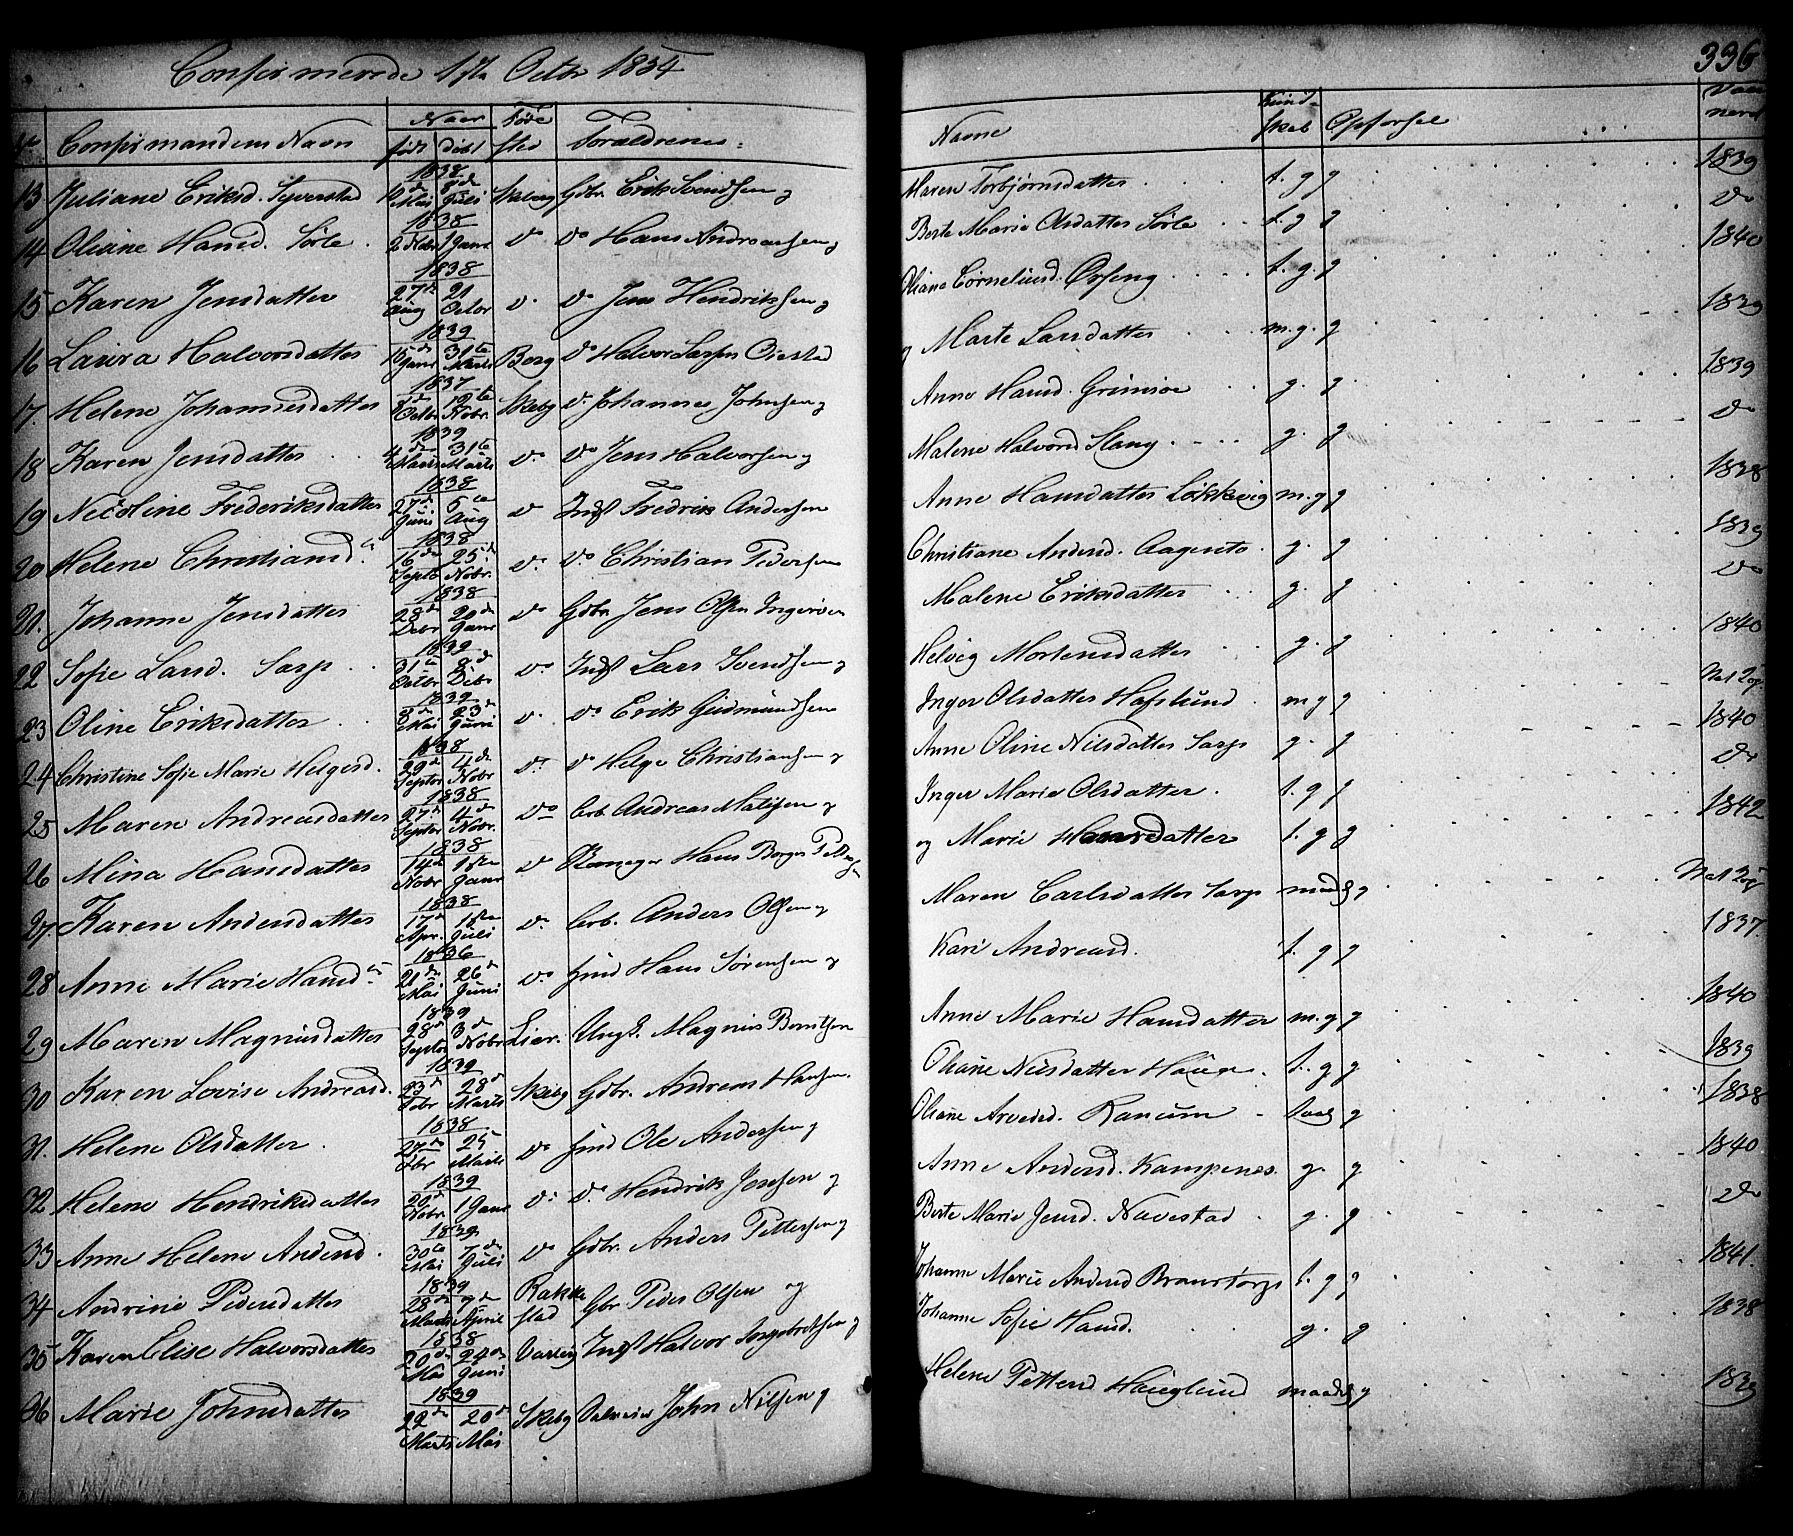 Confirmerede 1ste Octbr 1854
336
No Confirmandens Navn Naar født Døbt Føde sted Foraldrenes
Navne Kund- skab Opførsel Vacci nerd
13 Juliane Eriksd. 1838 Mai 8de Juli Skbrg Gbr. Erik Svendsen og Maren Torbjørnsdatter t. g g 1839
14 Oliane Hansd. Sørle 1838 2 Nobr 1 Janr do do Hans Andreasen og Berte Marie Olsdatter Sørle t. g g do
15 Karen Jensdatter 1838 27de Aug 21 Octbr do do Jens Hendriksen og Oliane Corneliusd. t. g. g 1840
16 Laura Halvorsdatter 1839 15de Janr 31te Marts Borg do Halvor Larsen og Marte Larsdatter m. g. g 1839
17. Helene Johannesdatter 1837 8de Octbr 19te Nobr. Skbg do Johannes Johnsen og Anne Hansd. Grimsøe g. g 1839
18 Karen Jensdatter 1839 4de Marts 31te Marts do do Jens Halvorsen og Malene Halvorsd Slang g. g do
19 Nicoline Frederiksdatter 1838 27de Juni 5te Aug do Indst Fredrik Andersen Anne Hansdatter Løkkevig m. g g 1838
20 Helene Christiansd. 1838 16de Septb 25de Nobr. do do Christian Pedersen Christiane Andersd. Aagento g. g 1839
21. Johanne Jensdatter 1838 28de Debr 20de Janr do Gbr Jens Olsen Malene Eriksdatter g. g do
22 Sofie Larsd. Sarp 1839 31te Octbr 8de Debr do Indst Lars Svendsen og Helvig Mortensdatter g. g 1840
23 Oline Eriksdatter 1839 3de Mai 23de Juni do do Erik Gudmundsen Inger Olsdatter Hafslund m g g
24 Christine Sofie Marie Helgesd. 1838 29de Septbr 4de Nobr do do Helge Christiansen og Anne Oline Nilsdatter Sarp g. g 1840
25 Maren Andreasdatter 1838 27de Septbr 4de Nobr. do Arb. Andreas og Inger Marie Olsdatter. t. g g do
26 Mina Hansdatter 1838 14de Nobr 1ste Janr do Hans og Marie Hansdatter t. g g 1842
27. Karen Andersdatter 1838 17de Apr. 18de Juli do Arb. Anders Olsen og Maren Carlsdatter Sarp maadl g
28 Anne Marie Hansd. 1836 21de Mai 26de Juni do Hans Sørensen og Kari Andreasd. t. g g 1837
29 Maren Magnusdatter 1839 28de Septbr 3de Nobr Lier. Ungk. Magnus Berntsen Anne Marie Hansdatter m. g g 1840
30 Karen Lovise Andreasd. 1839 23de Febr 28de Marts Skbg Gbr. Andreas Hansen. Oliane Nilsdatter Hauge. t. g g 1839
31. Helene Olsdatter 1838 27de Febr 25 Marts do Ole Andersen og Oliane Arvedsd. Ranum taal g 1838
32 Helene Hendriksdatter 1839 20de Nobr. 1 Janr do do Hendrik Jensen og Anne Andersd. Kampenes. g. g 1840
33 Anne Helene Andersd. 1839 30te Mai 7de Juli do Gbr. Anders Pettersen og Berte Marie Jensd. Navestad g. g do
34 Andrine Pedersdatter 1839 28de Marts 7de April Rakke stad Gbr Peder Olsen og Johanne Marie Andersd t. g g 1841.
35 Karen Elise Halvorsdatter 1838 20de Mai 24de Juni Varteig Indst Halvor Ingebretsen og Johanne Sofie Hansd. g. g 1838
36 Marie Johnsdatter 1839 22de Marts 20de Mai Skbg John Nilsen og Helene Pettersd Hauglund maadl g 1839